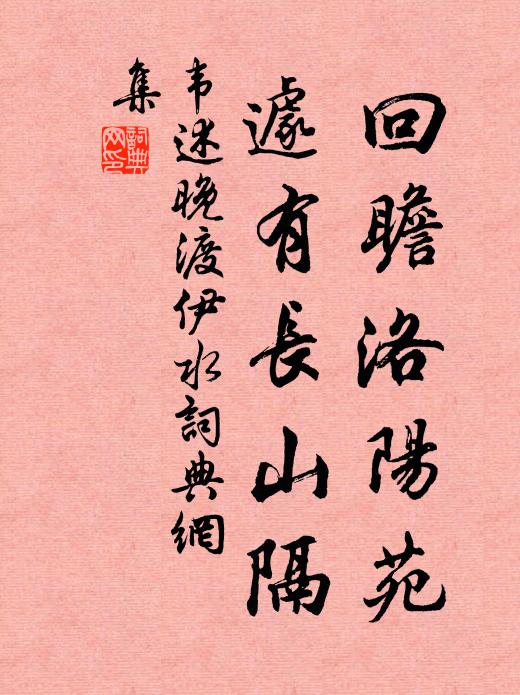 回瞻洛陽苑
遽有長山隔
韦述晚渡伊水詞典網
集
詞典网印